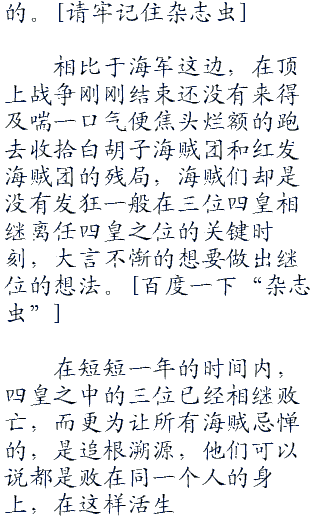 的。[请牢记住杂志虫]
相比于海军这边，在顶
上战争刚刚结束还没有来得
及喘一口气便焦头烂额的跑
去收拾白胡子海贼团和红发
海贼团的残局，海贼们却是
没有发狂一般在三位四皇相
继离任四皇之位的关键时
刻，大言不惭的想要做出继
位的想法。[百度一下“杂志
虫”]
在短短一年的时间内，
四皇之中的三位已经相继败
亡，而更为让所有海贼忌惮
的，是追根溯源，他们可以
说都是败在同一个人的身
上，在这样活生